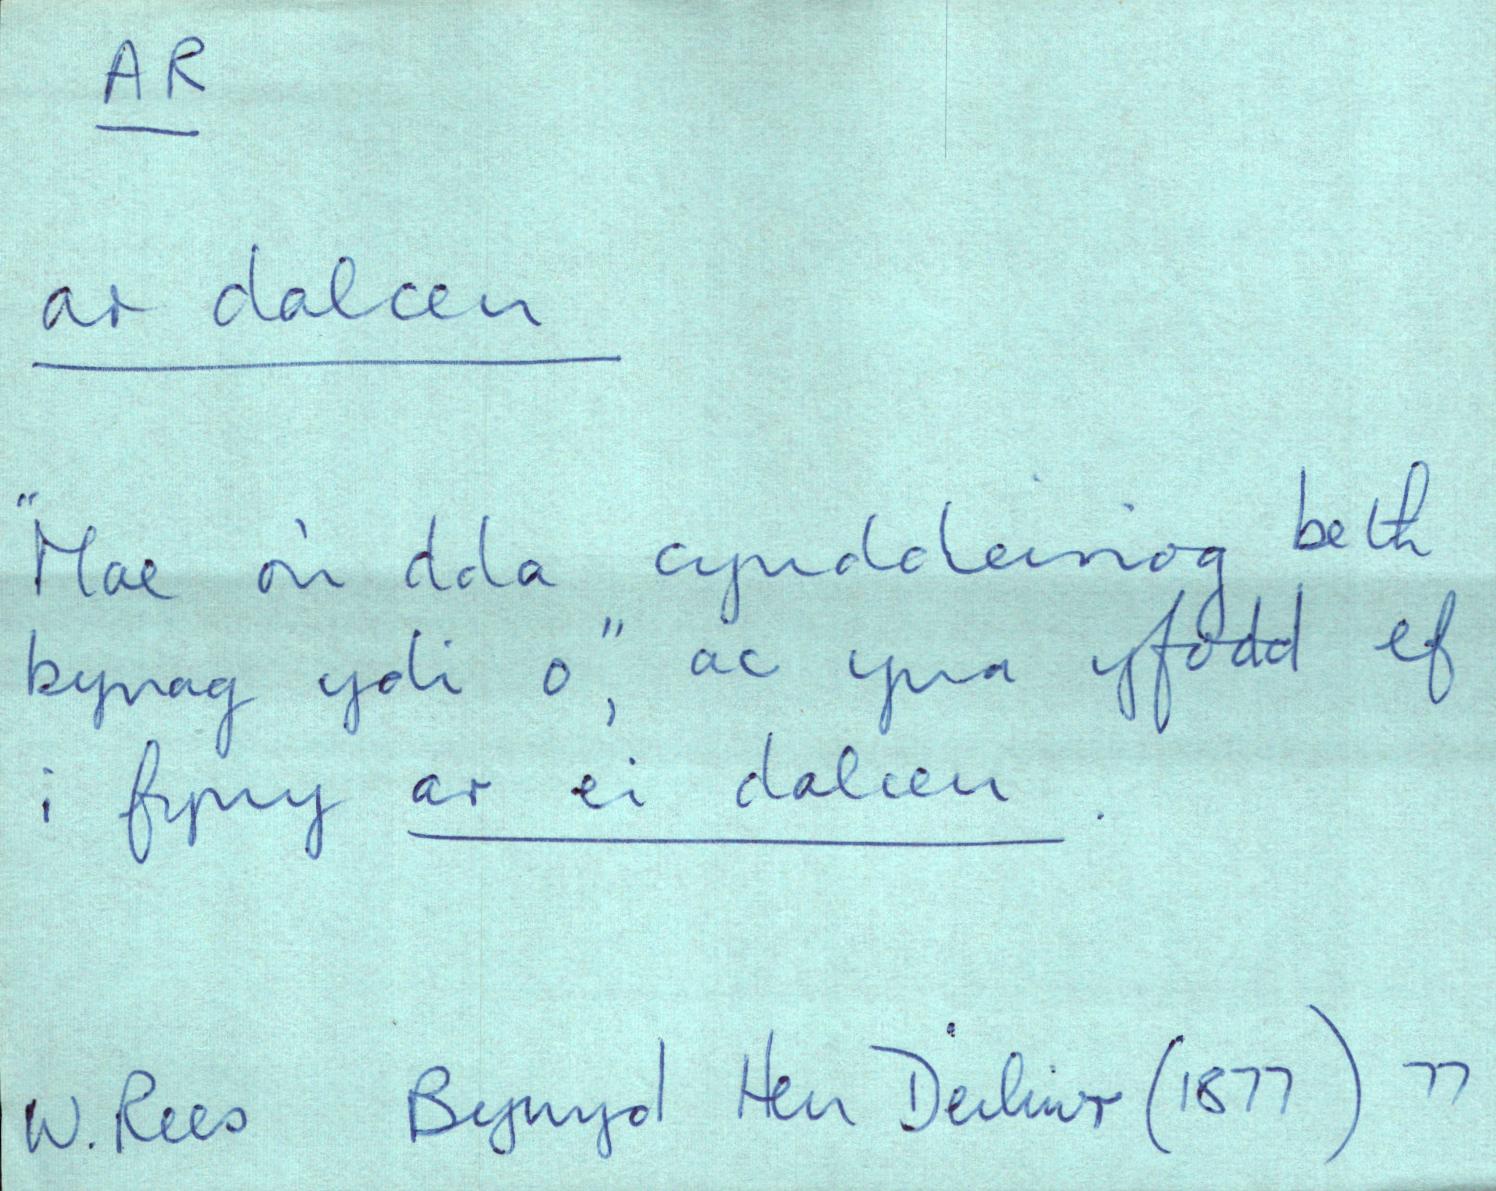 AR
ar dalcen
"Mae o'n dda cynddeiriog beth
bynag ydi o", ac yna yfodd ef
i fyny ar ei dalcen.
W. Rees Bywyd Hen Deiliwr (1877) 77